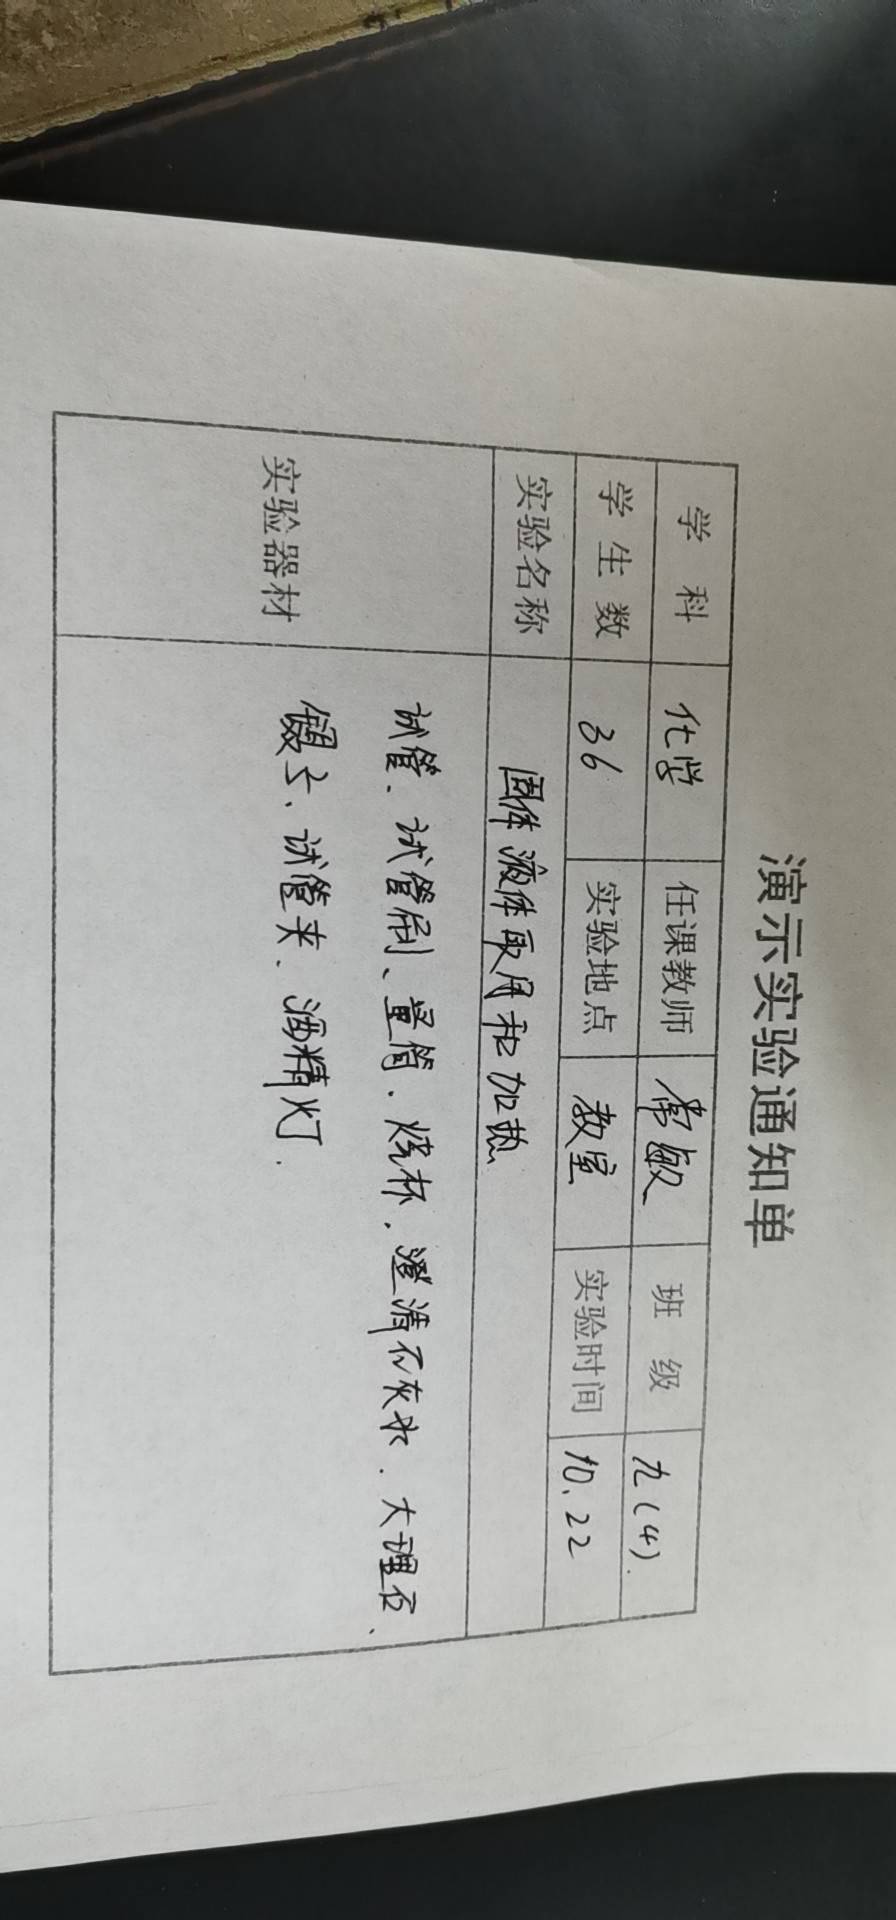 演示实验通知单
学 科 化学 任课教师 常敏 班 级 九(4).
学 生 数 36 实验地点 教室 实验时间 10.22
实验名称 固体液体取用和加热
实验器材 试管、试管刷、量筒、烧杯、澄清石灰水、大理石、
镊子、试管夹、酒精灯.